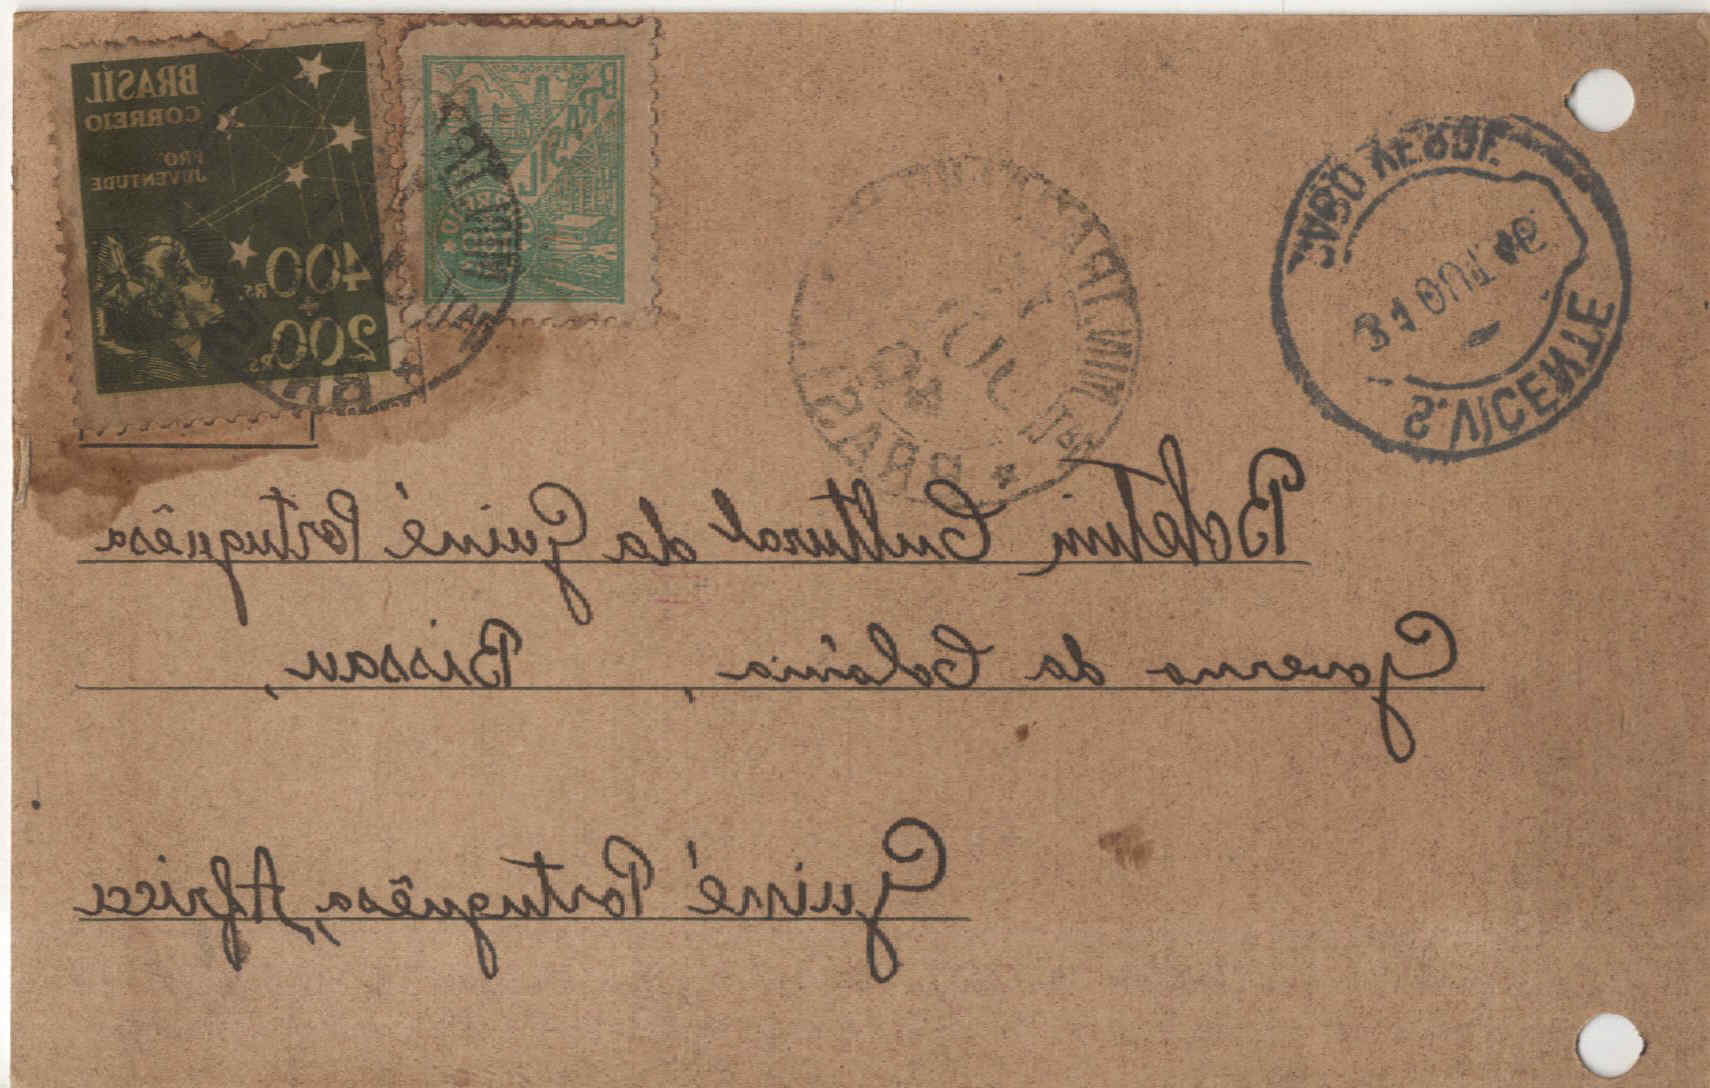 BRASIL
CORREIO
PRÓ
JUVENTUDE
400 RS.
+
200 RS.
BRASIL
CORREIO
BRASIL
CABO VERDE
31 OUT. 46
S. VICENTE
Boletim Cultural da Guiné Portuguêsa
Governo da Colónia, Bissau,
Guiné Portuguêsa, Africa